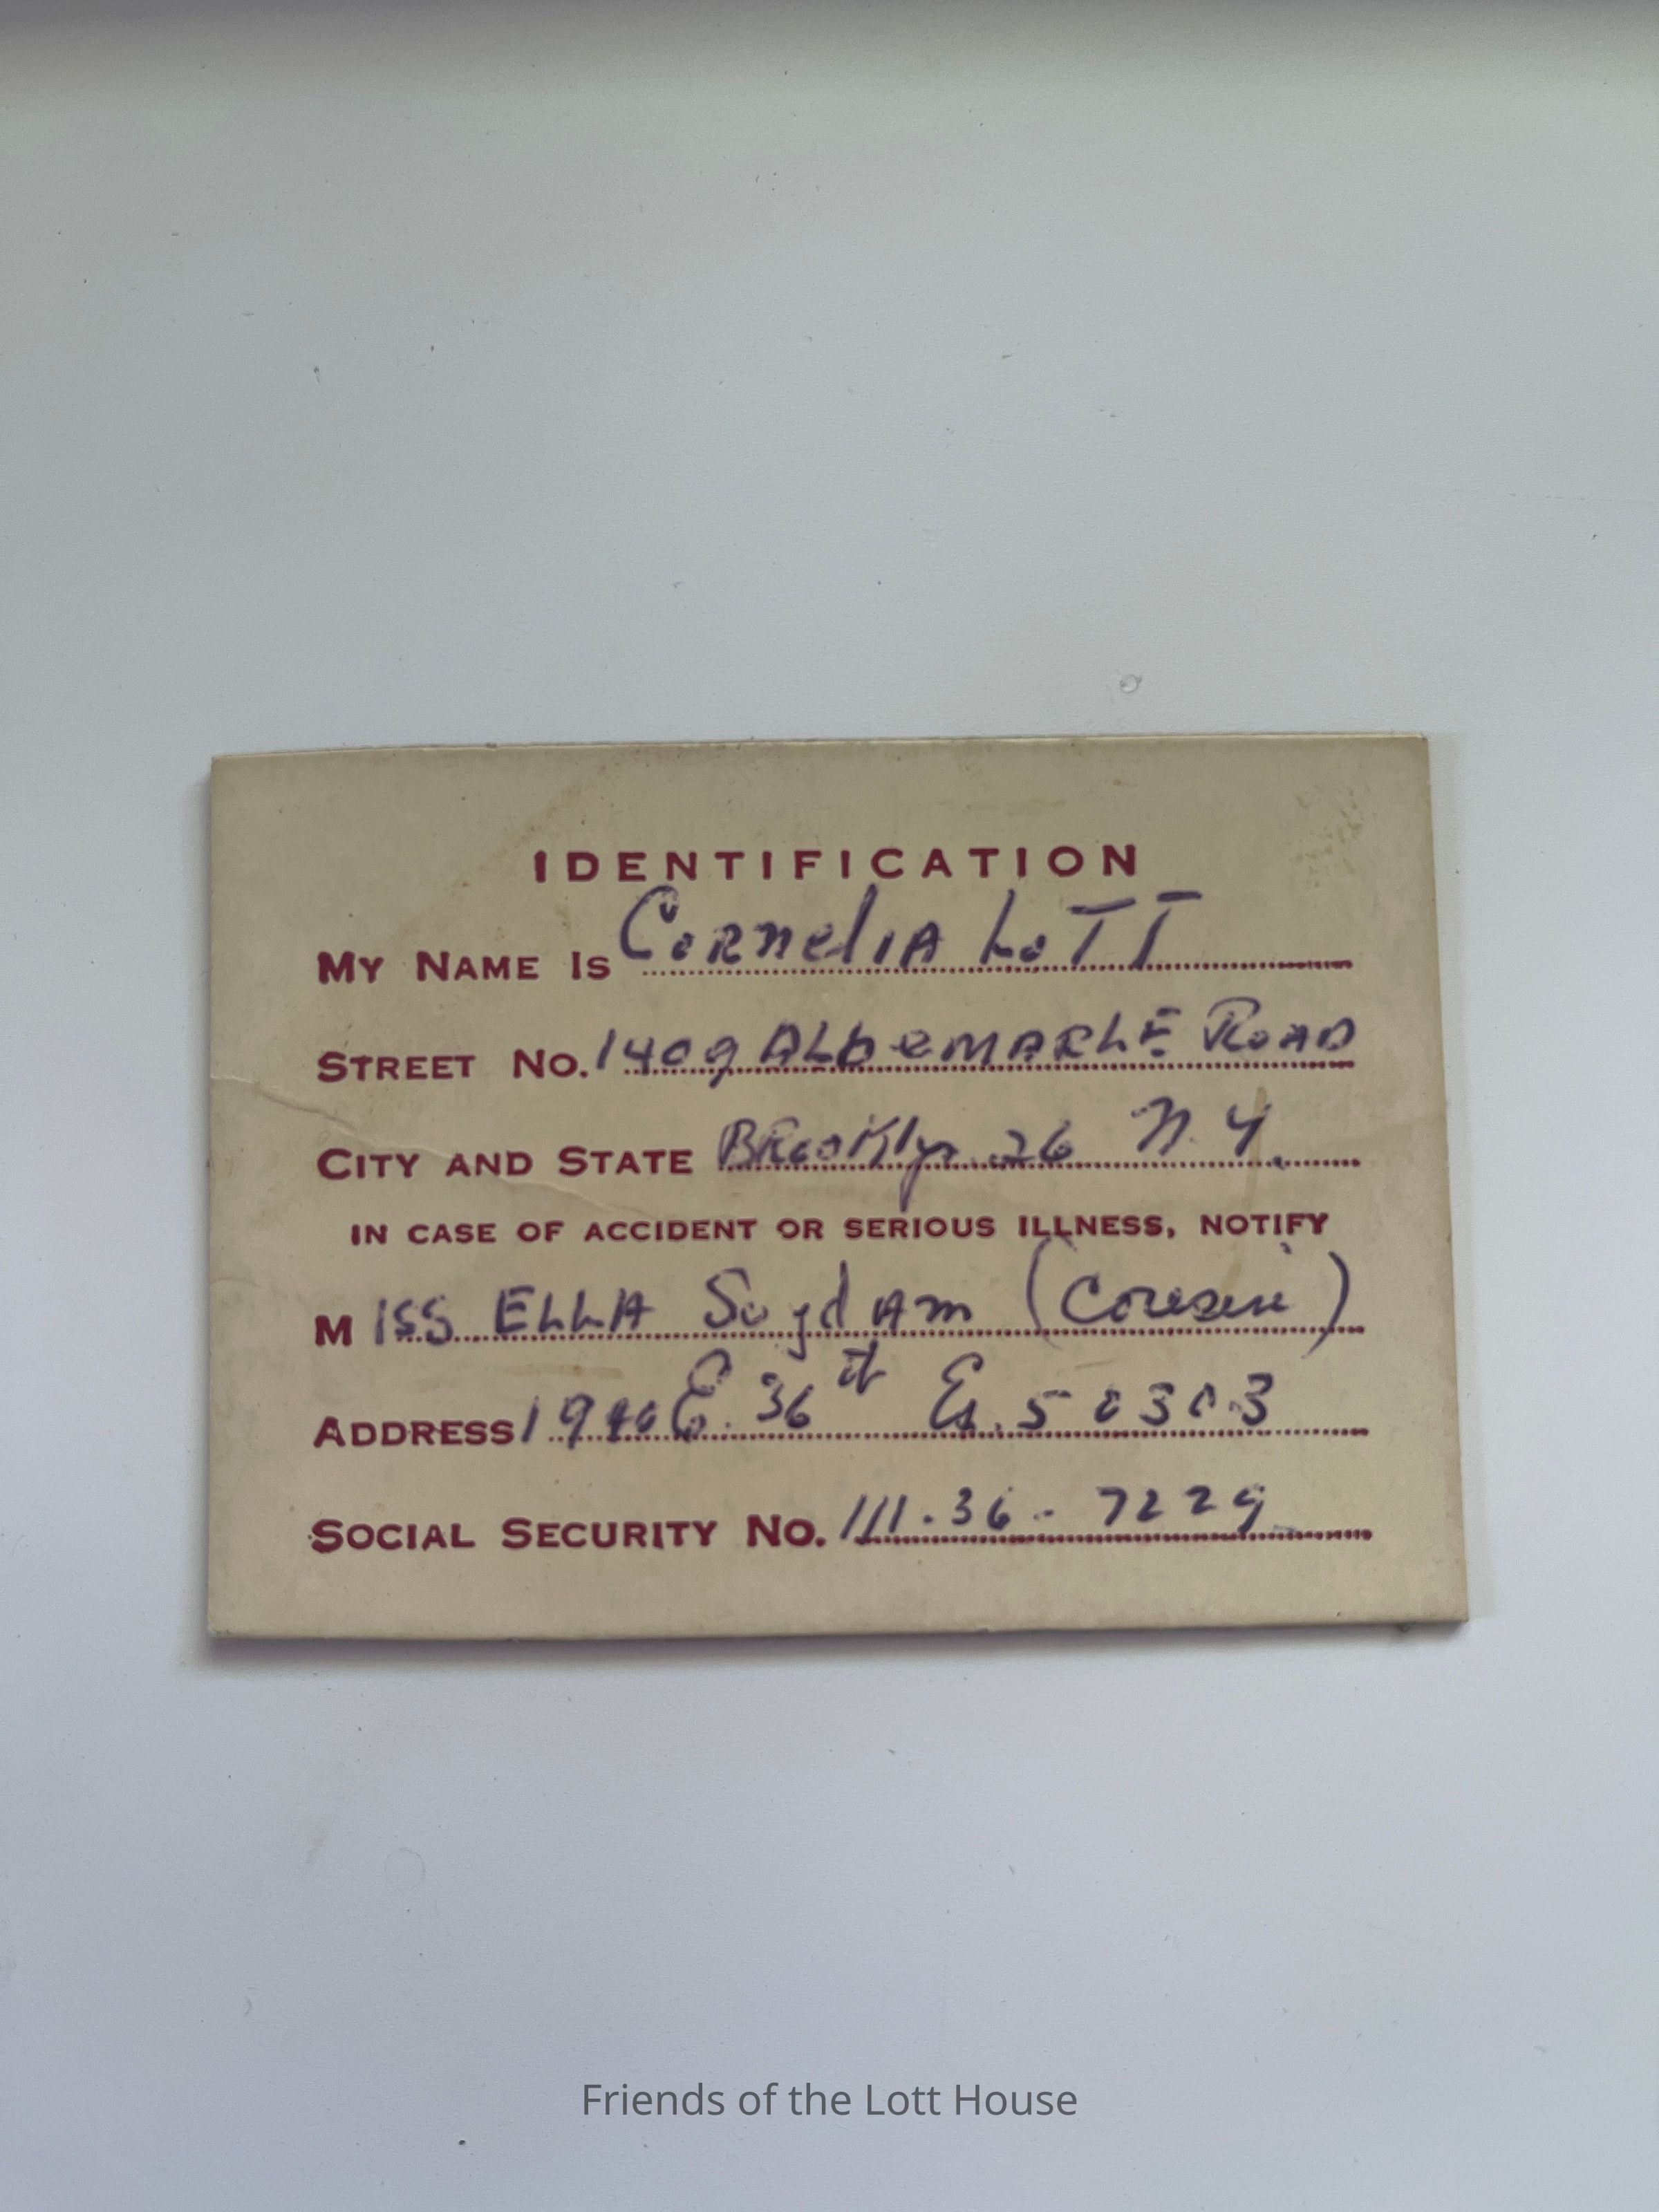 IDENTIFICATION
MY NAME IS Cornelia Lott
STREET NO. 1409 ALbeMARLE ROAD
CITY AND STATE BRooklyn 26 N.Y.
IN CASE OF ACCIDENT OR SERIOUS ILLNESS, NOTIFY
MISS ELLA Suydam (Cousin)
ADDRESS 1940 E. 36th Es. 50303
SOCIAL SECURITY NO. 111.36-7229
Friends of the Lott House